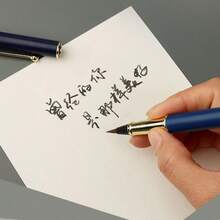 曾经的你
是那样美好